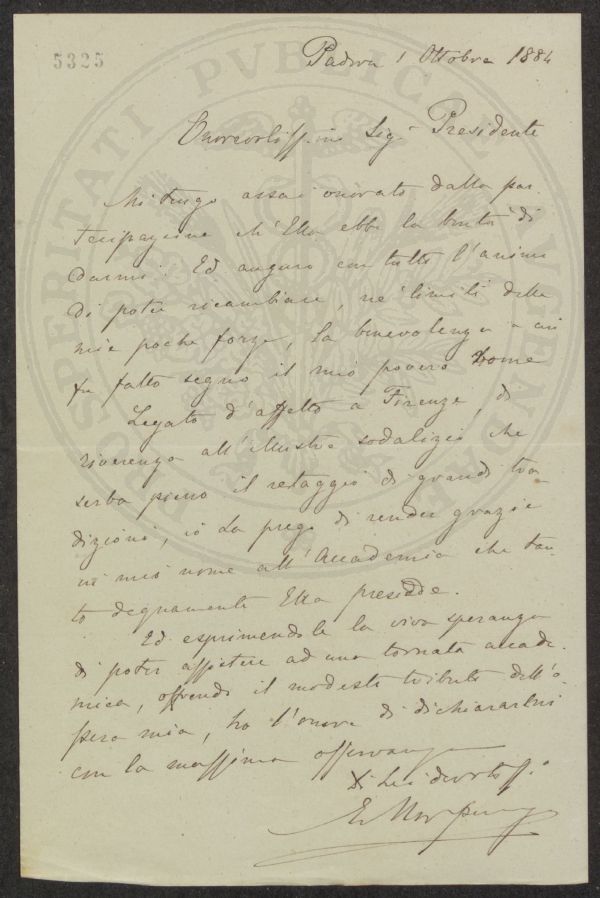 5325
Padova 1 Ottobre 1884
Onorevoliss.mo Sig.r Presidente
Mi tengo assai onorato dalla par-
tecipazione ch'Ella ebbe la bontà di
darmi. Ed auguro con tutto l'animo
di poter ricambiare, ne' limiti delle
mie poche forze, la benevolenza a cui
fu fatto segno il mio povero nome
Legato d'affetto a Firenze, di
riverenza all'illustre sodalizio che
serba pieno il retaggio di grandi tra-
dizioni, io La prego di render grazie
in mio nome all'Accademia che tan-
to degnamente Ella presiede.
Ed esprimendole la viva speranza
di poter assistere ad una tornata accade-
mica, offrendo il modesto tributo dell'o-
pera mia, ho l'onore di dichiararmi
con la massima osservanza
Di Lei devotiss.o
E. Morpurgo
PROSPERITATI PVBLICAE AVGENDAE